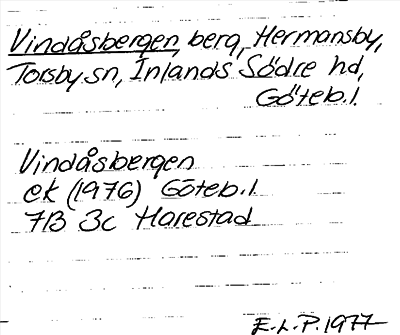 Vindåsbergen, berg, Hermansby,
Torsby sn, Inlands Södre hd,
Göteb.l.
Vindåsbergen
ek (1976) Göteb.l.
7B 3c Harestad
E.L.P. 1977